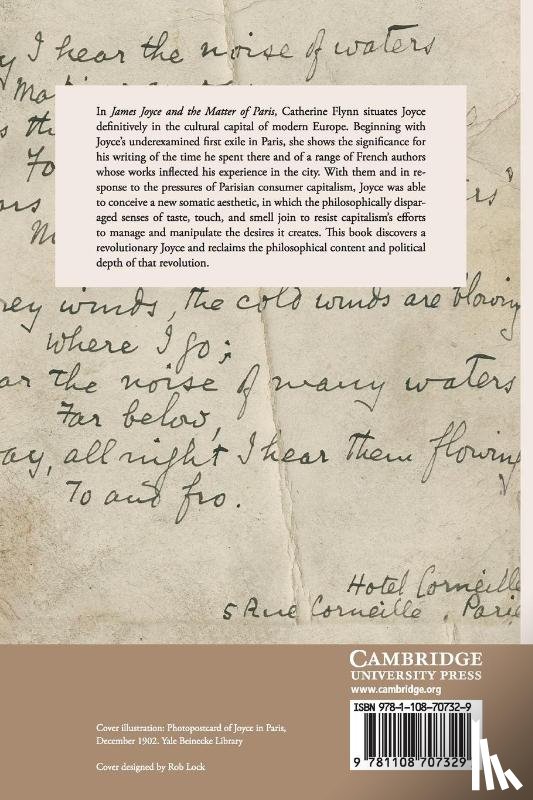 y I hear the noise of waters
Ma
s th
To
ars
rs'
M
In James Joyce and the Matter of Paris, Catherine Flynn situates Joyce
definitively in the cultural capital of modern Europe. Beginning with
Joyce's underexamined first exile in Paris, she shows the significance for
his writing of the time he spent there and of a range of French authors
whose works inflected his experience in the city. With them and in re-
sponse to the pressures of Parisian consumer capitalism, Joyce was able
to conceive a new somatic aesthetic, in which the philosophically dispar-
aged senses of taste, touch, and smell join to resist capitalism's efforts
to manage and manipulate the desires it creates. This book discovers a
revolutionary Joyce and reclaims the philosophical content and political
depth of that revolution.
rey winds, the cold winds are blowing
where I go;
ar the noise of many waters
Far below,
ay, all night I hear them flowing
To and fro.
Hotel Corneille
5 Rue Corneille, Paris
CAMBRIDGE
UNIVERSITY PRESS
www.cambridge.org
ISBN 978-1-108-70732-9
9 781108 707329
Cover illustration: Photopostcard of Joyce in Paris,
December 1902. Yale Beinecke Library
Cover designed by Rob Lock